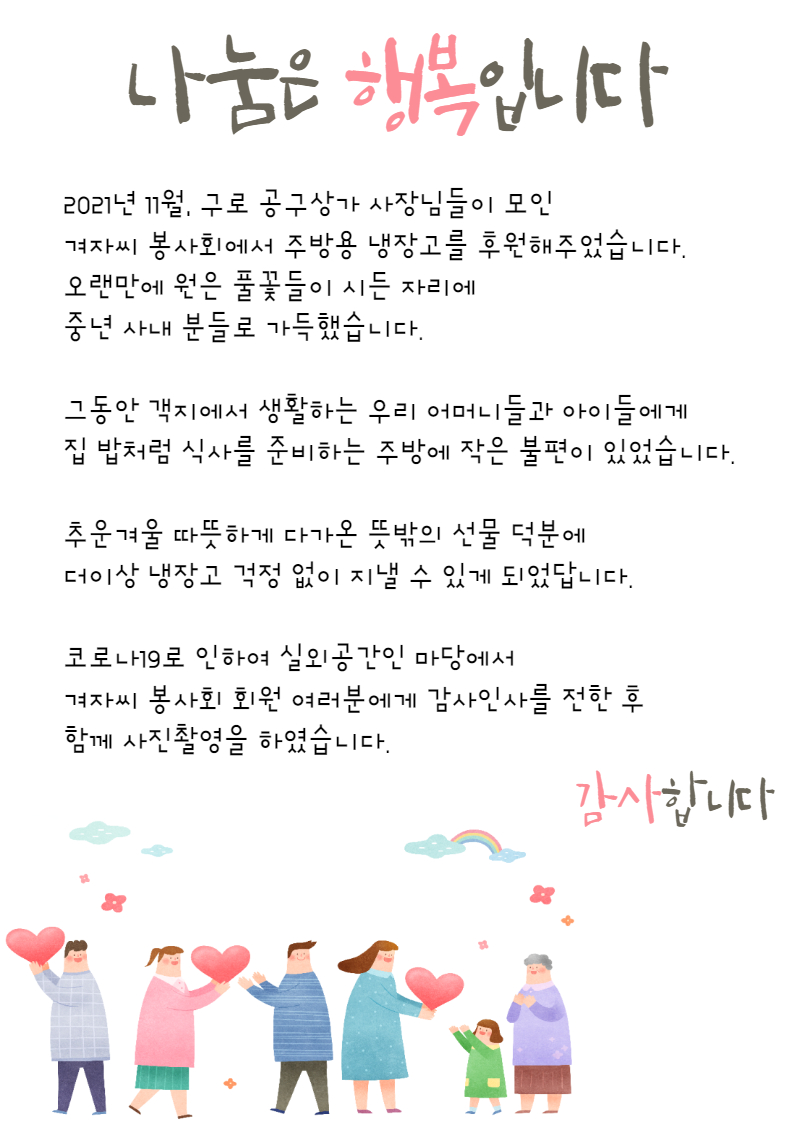 나눔은 행복입니다
2021년 11월, 구로 공구상가 사장님들이 모인
겨자씨 봉사회에서 주방용 냉장고를 후원해주었습니다.
오랜만에 원은 풀꽃들이 시든 자리에
중년 사내 분들로 가득했습니다.
그동안 객지에서 생활하는 우리 어머니들과 아이들에게
집 밥처럼 식사를 준비하는 주방에 작은 불편이 있었습니다.
추운겨울 따뜻하게 다가온 뜻밖의 선물 덕분에
더이상 냉장고 걱정 없이 지낼 수 있게 되었답니다.
코로나19로 인하여 실외공간인 마당에서
겨자씨 봉사회 회원 여러분에게 감사인사를 전한 후
함께 사진촬영을 하였습니다.
감사합니다